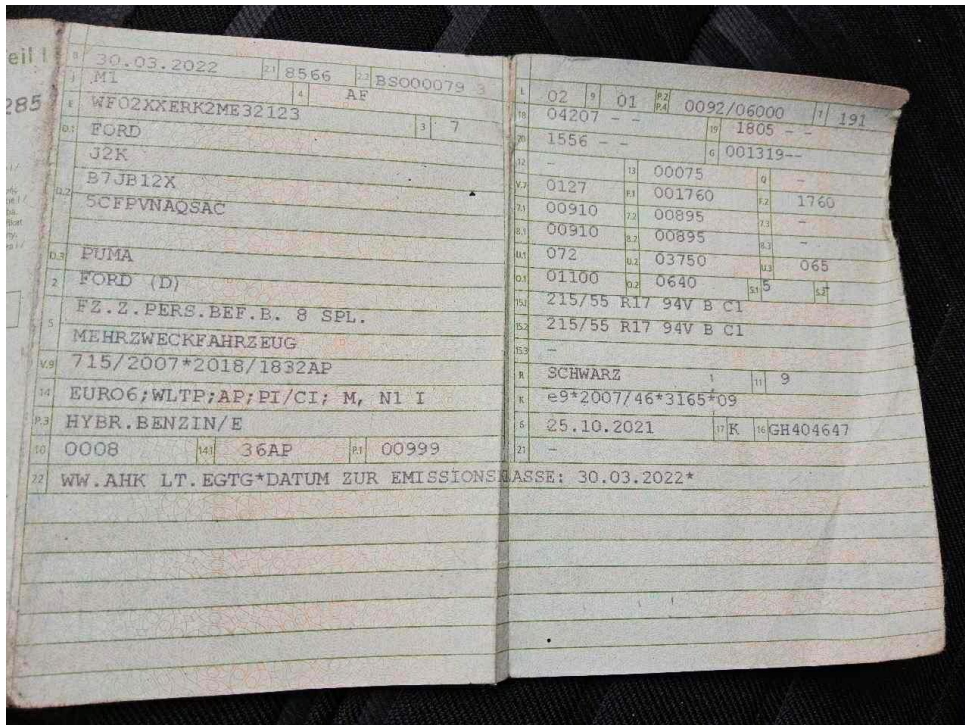 eil I
285
B 30.03.2022 2.1 8566 2.2 BS000079 3
J M1 4 AF
E WF02XXERK2ME32123 3 7
D.1 FORD
J2K
D.2 B7JB12X
5CFPVNAQSAC
D.3 PUMA
2 FORD (D)
FZ.Z.PERS.BEF.B. 8 SPL.
5 MEHRZWECKFAHRZEUG
V.9 715/2007*2018/1832AP
14 EURO6;WLTP;AP;PI/CI; M, N1 I
P.3 HYBR.BENZIN/E
10 0008 14.1 36AP P.1 00999
22 WW.AHK LT.EGTG*DATUM ZUR EMISSIONSKLASSE: 30.03.2022*
L 02 9 01 P.2 P.4 0092/06000 T 191
18 04207 - - 19 1805 - -
20 1556 - - G 001319--
12 - 13 00075 Q -
V.7 0127 F.1 001760 F.2 1760
7.1 00910 7.2 00895 7.3 -
8.1 00910 8.2 00895 8.3 -
U.1 072 U.2 03750 U.3 065
O.1 01100 O.2 0640 S.1 5 S.2
15.1 215/55 R17 94V B C1
15.2 215/55 R17 94V B C1
15.3 -
R SCHWARZ 11 9
K e9*2007/46*3165*09
6 25.10.2021 17 K 16 GH404647
21 -